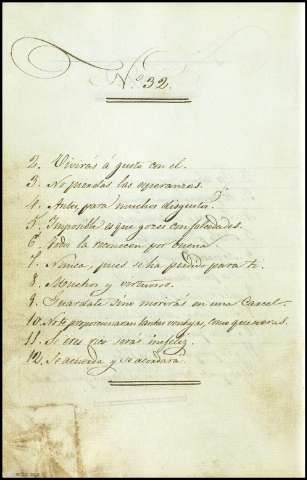 Nº 32.
2. Vivirás á gusto con el.
3. No pierdas las esperanzas.
4. Antes, para muchos disgustos.
5. Imposible es que goces comodidades.
6. Todos la reconocen por buena
7. Nunca, pues se ha perdido para ti.
8. Muchos y virtuosos.
9. Guardate sino morirás en una Carcel.
10. No te proporcionaran tantas ventajas, como quisieras.
11. Si eres rico seras infeliz.
12. Se acuerda y se acordará.